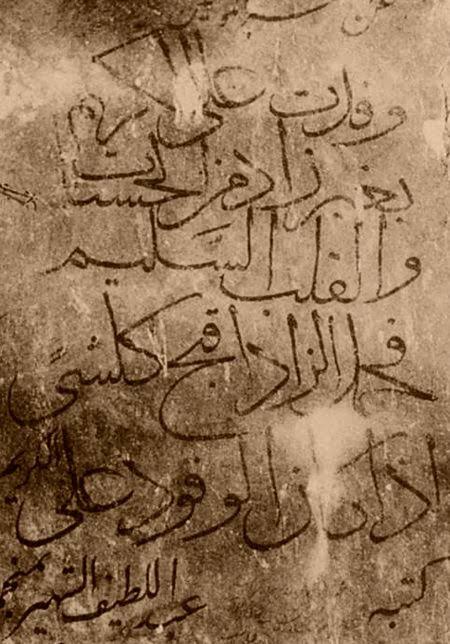 وفدت على الكريم
بغير زاد من الحسنات
والقلب السليم
فحمل الزاد اقبح كلشئ
اذا كان الوفود على الكريم
كتبه عبد اللطيف الشهير بمنجم